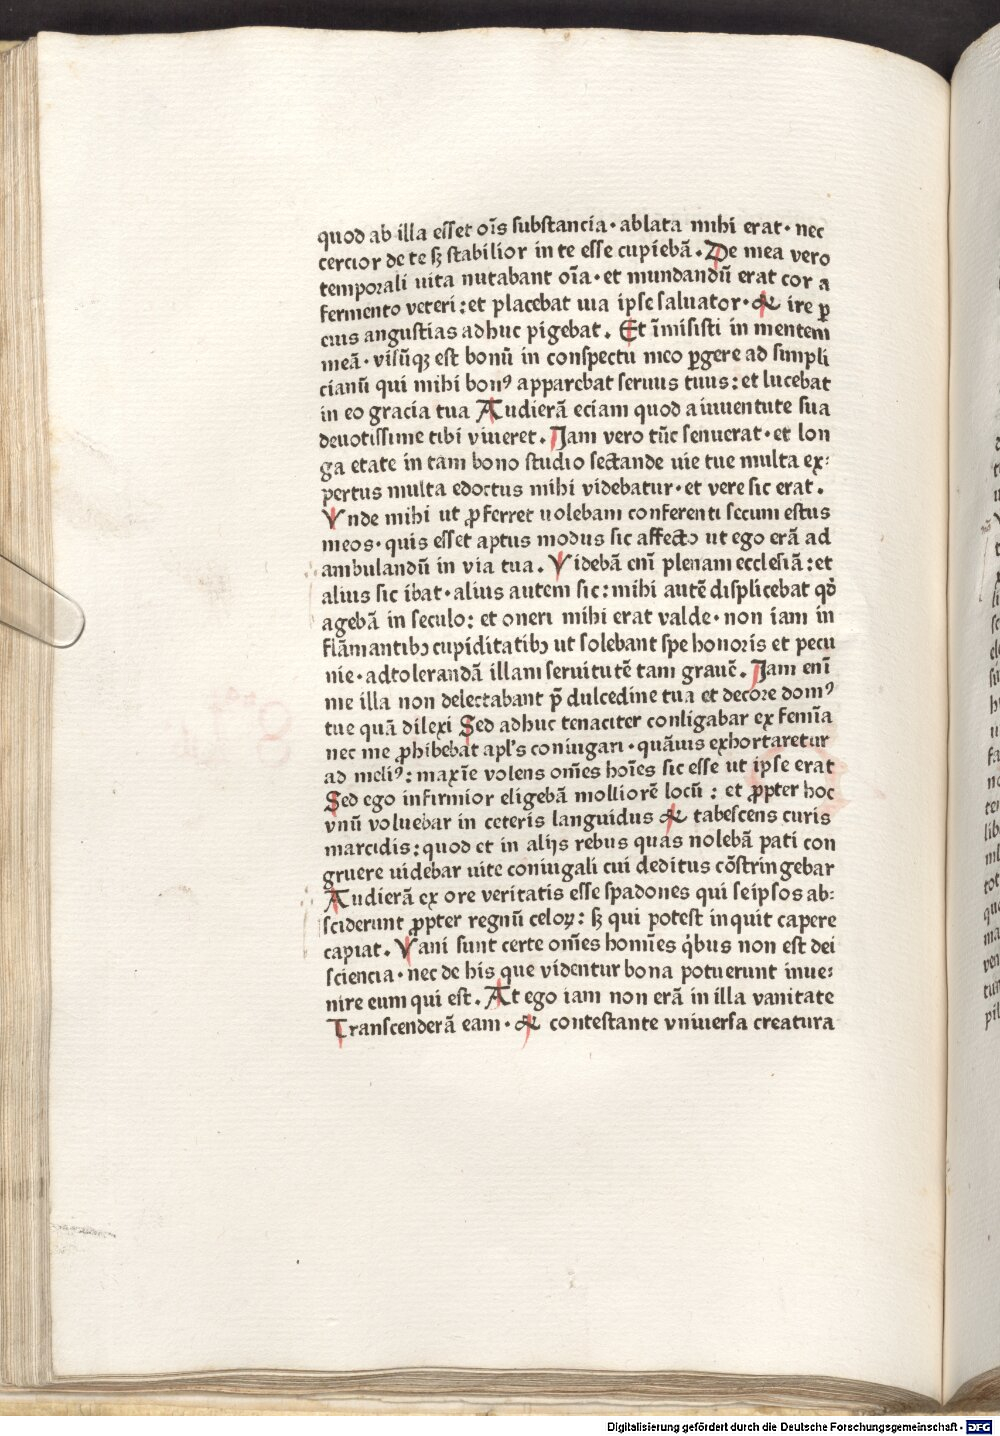 quod ab illa esset oīs substancia · ablata mihi erat · nec
cercior de te sꝫ stabilior in te esse cupiebā . De mea vero
temporali uita nutabant oīa · et mundandū erat cor a
fermento veteri : et placebat uia ipse saluator · & ire ꝑ
eius angustias adhuc pigebat . Et īmisisti in mentem
meā · visūqꝫ est bonū in conspectu meo ꝑgere ad simpli
cianū qui mihi bonꝰ apparebat seruus tuus : et lucebat
in eo gracia tua Audierā eciam quod a iuuentute sua
deuotissime tibi viueret . Jam vero tūc senuerat · et lon
ga etate in tam bono studio sectande uie tue multa ex:
pertus multa edoctus mihi videbatur · et vere sic erat .
Vnde mihi ut ꝓferret uolebam conferenti secum estus
meos · quis esset aptus modus sic affecto ut ego erā ad
ambulandū in via tua . Videbā enī plenam ecclesiā : et
alius sic ibat · alius autem sic : mihi autē displicebat qđ
agebā in seculo : et oneri mihi erat valde · non iam in
flāmantibꝫ cupiditatibꝫ ut solebant spe honoris et pecu
nie · ad tolerandā illam seruitutē tam grauē . Jam enī
me illa non delectabant p̄ dulcedine tua et decore domꝰ
tue quā dilexi Sed adhuc tenaciter conligabar ex femīa
nec me ꝓhibebat apl's coniugari · quāuis exhortaretur
ad meliꝰ : maxīe volens om̄es hoīes sic esse ut ipse erat
Sed ego infirmior eligebā molliorē locū : et ꝓpter hoc
vnū voluebar in ceteris languidus & tabescens curis
marcidis : quod et in alijs rebus quas nolebā pati con
gruere uidebar uite coniugali cui deditus cōstringebar
Audierā ex ore veritatis esse spadones qui seipsos ab:
sciderunt ꝓpter regnū celoꝝ : sꝫ qui potest inquit capere
capiat . Vani sunt certe om̄es homīes qͥbus non est dei
sciencia · nec de his que videntur bona potuerunt inue:
nire eum qui est . At ego iam non erā in illa vanitate
Transcenderā eam · & contestante vniuersa creatura
Digitalisierung gefördert durch die Deutsche Forschungsgemeinschaft - DFG